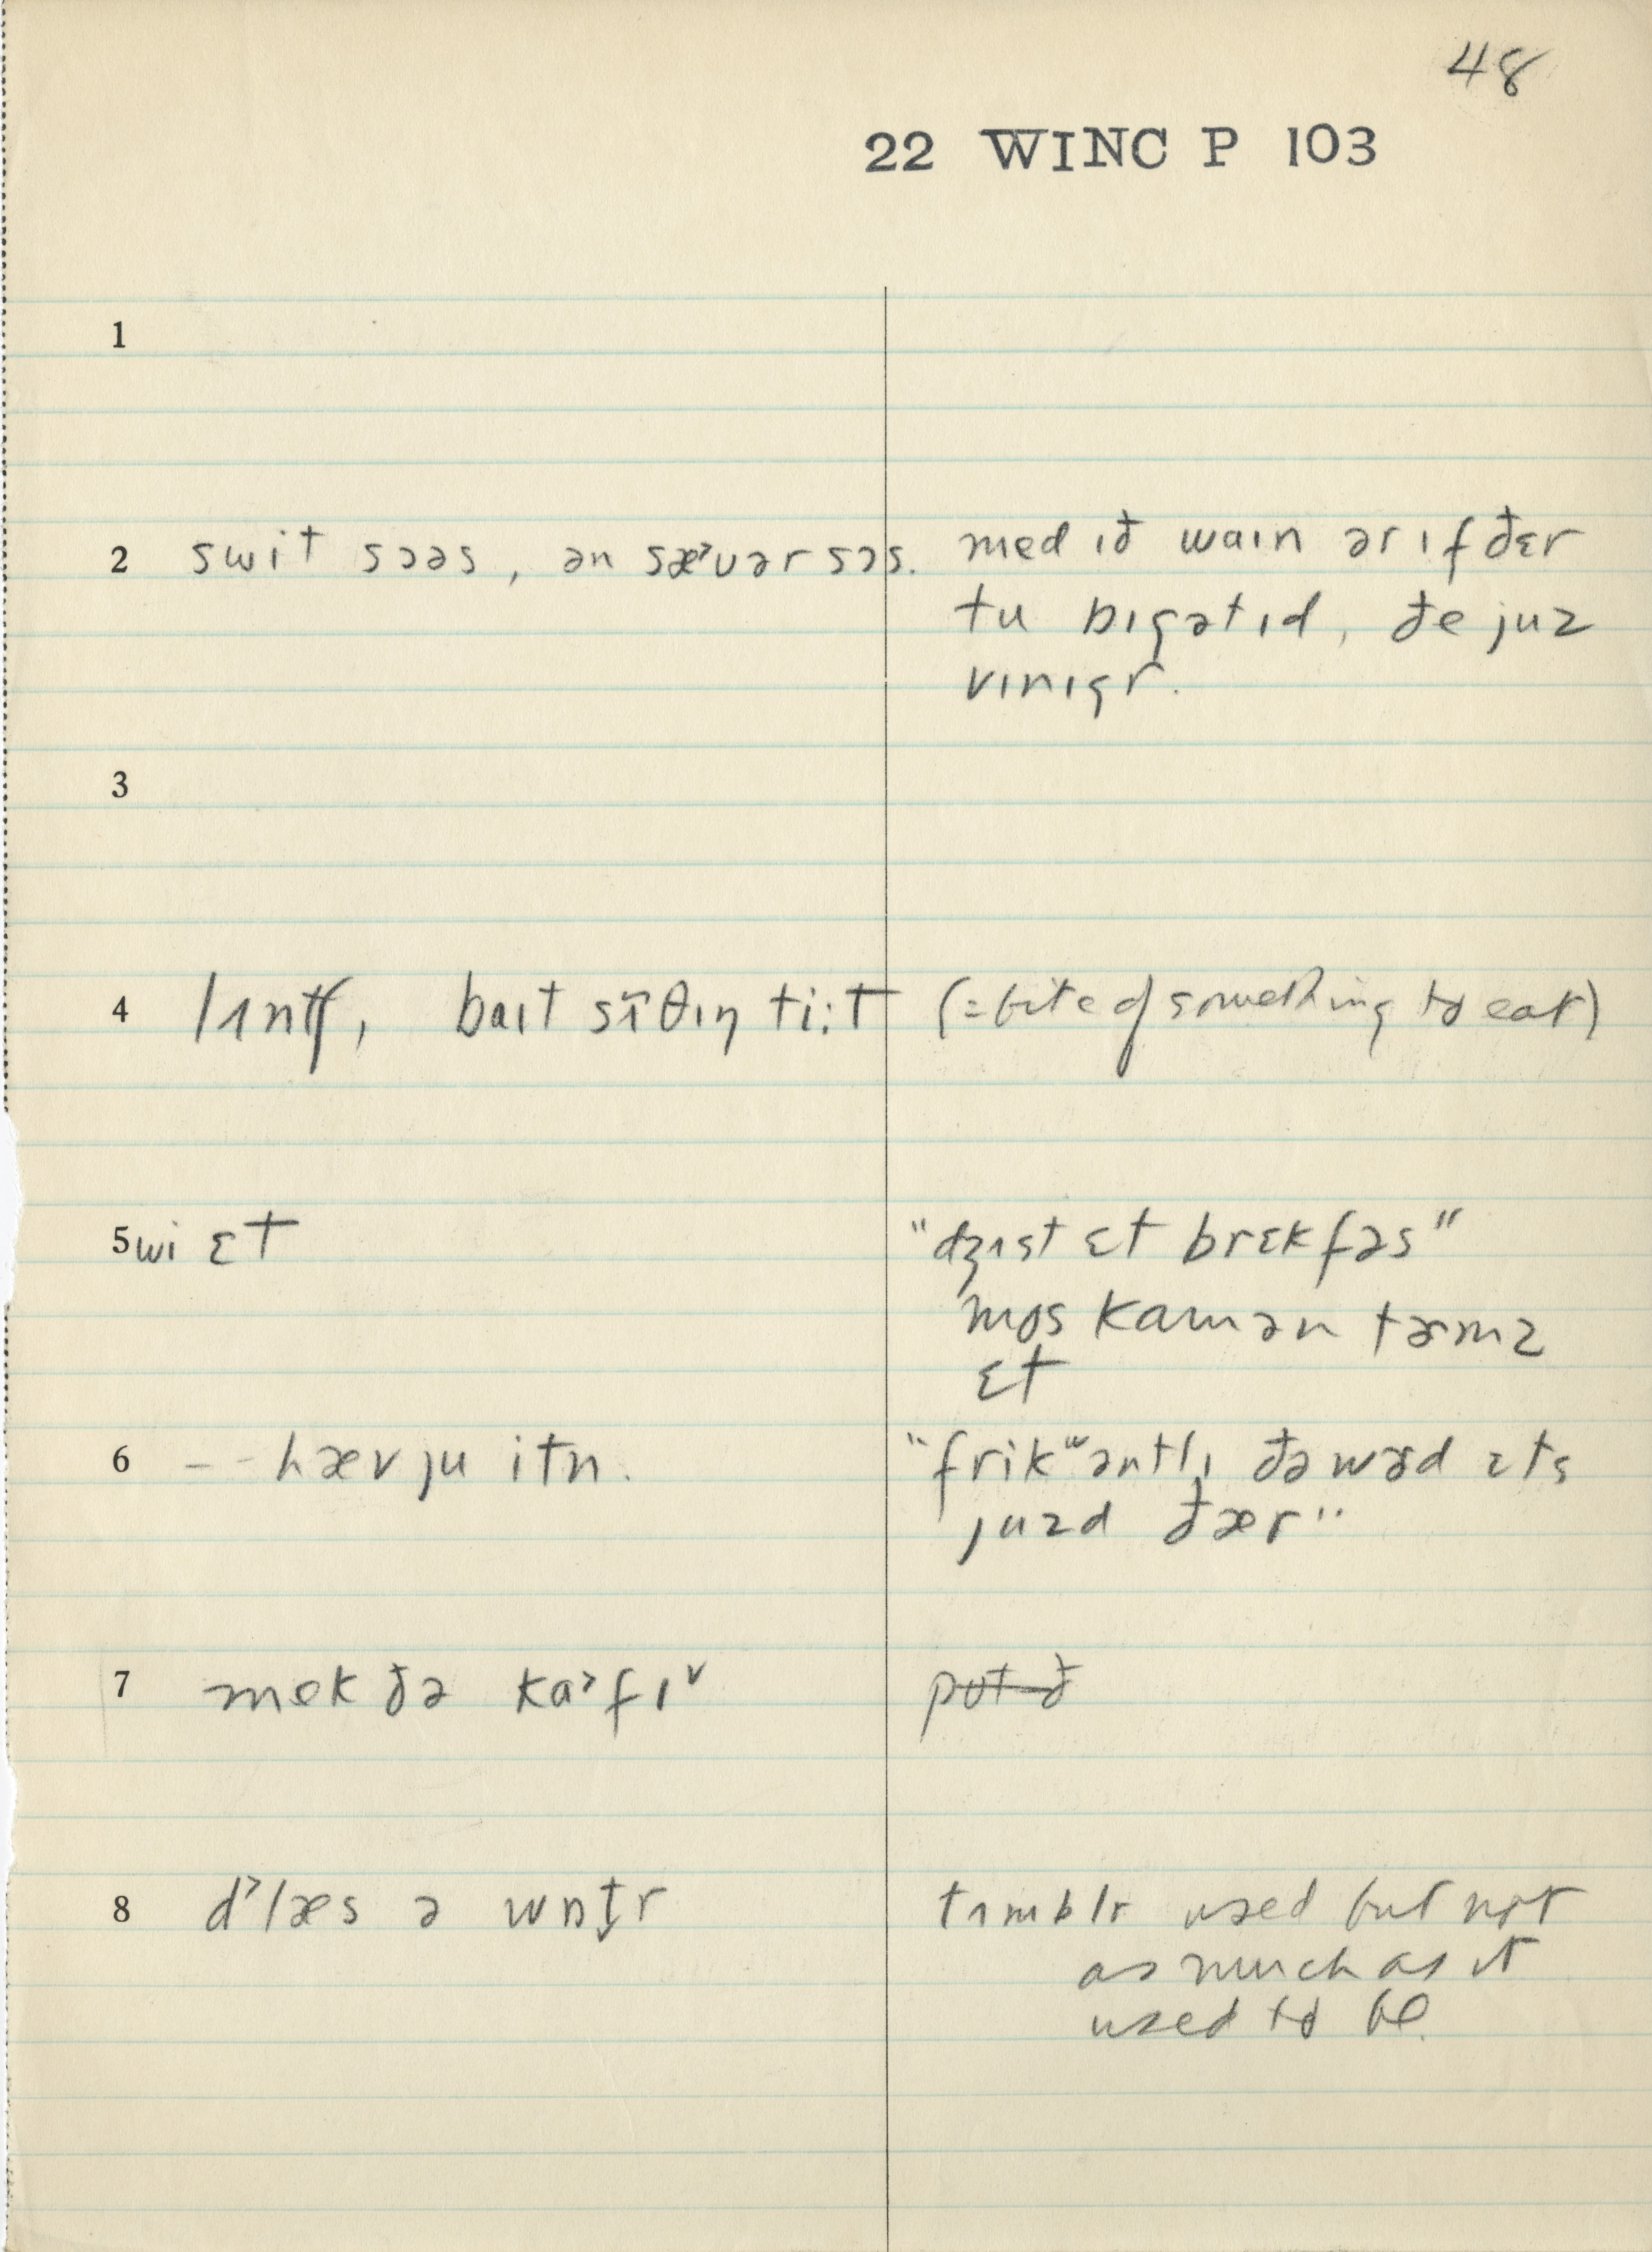 48
22 WINC P 103
1
2 swit sɔəs, ən sæ˃vər sɔs. med ɪð waɪn ər ɪf ðɛr
tu bɪgətɪd, ðe juz
vɪnɪgr.
3
4 lʌntʃ, baɪt sʌ̃θɪŋ ti:t (=bite of something to eat)
5 wi ɛt "dʒʌst ɛt brɛkfəs"
mos kamən tɚmz
ɛt
6 -- hæv ju itn. "frikʷəntlɪ ðə wɚd ɛts
juzd ðær"
7 mek ðə ka˃fɪ˅
8 d˃læs ə wɒt̬r tʌmblr used but not
as much as it
used to be.